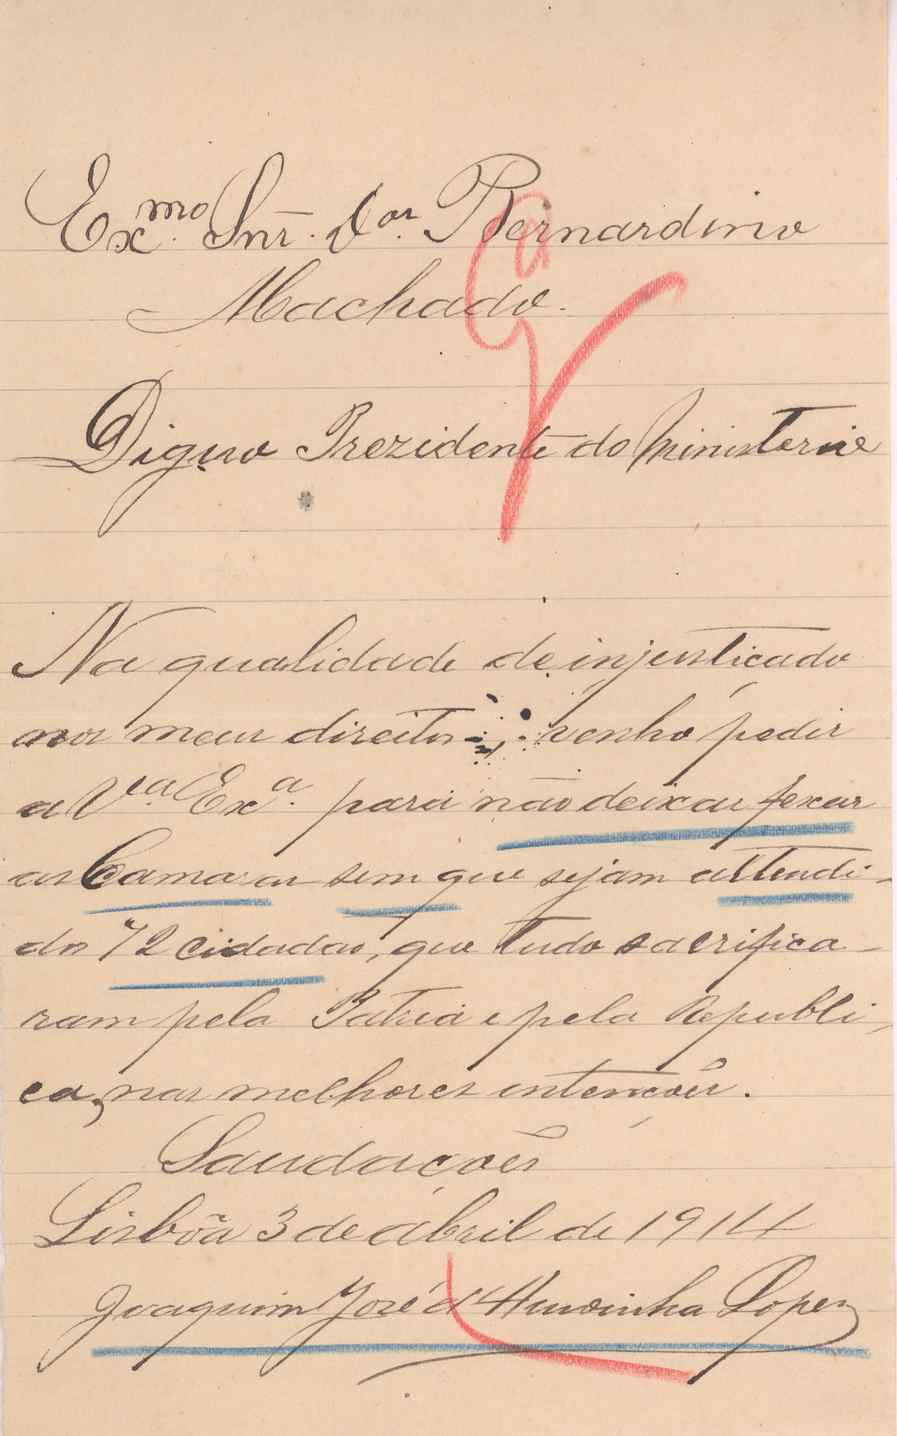 Exmo. Snr. Dor. Bernardino
Machado.
Digno Prezidente do Ministerio
Na qualidade de injusticado
nos meus direitos, venho pedir
a Vª. Exª. para não deixar fexar
as Camaras sem que sejam attendi-
dos 72 cidadaos, que tudo sacrifica-
ram pela Patria e pela Republi-
ca, nas melhores intenções.
Saudações
Lisbôa 3 de abril de 1914
Joaquim José Lopes